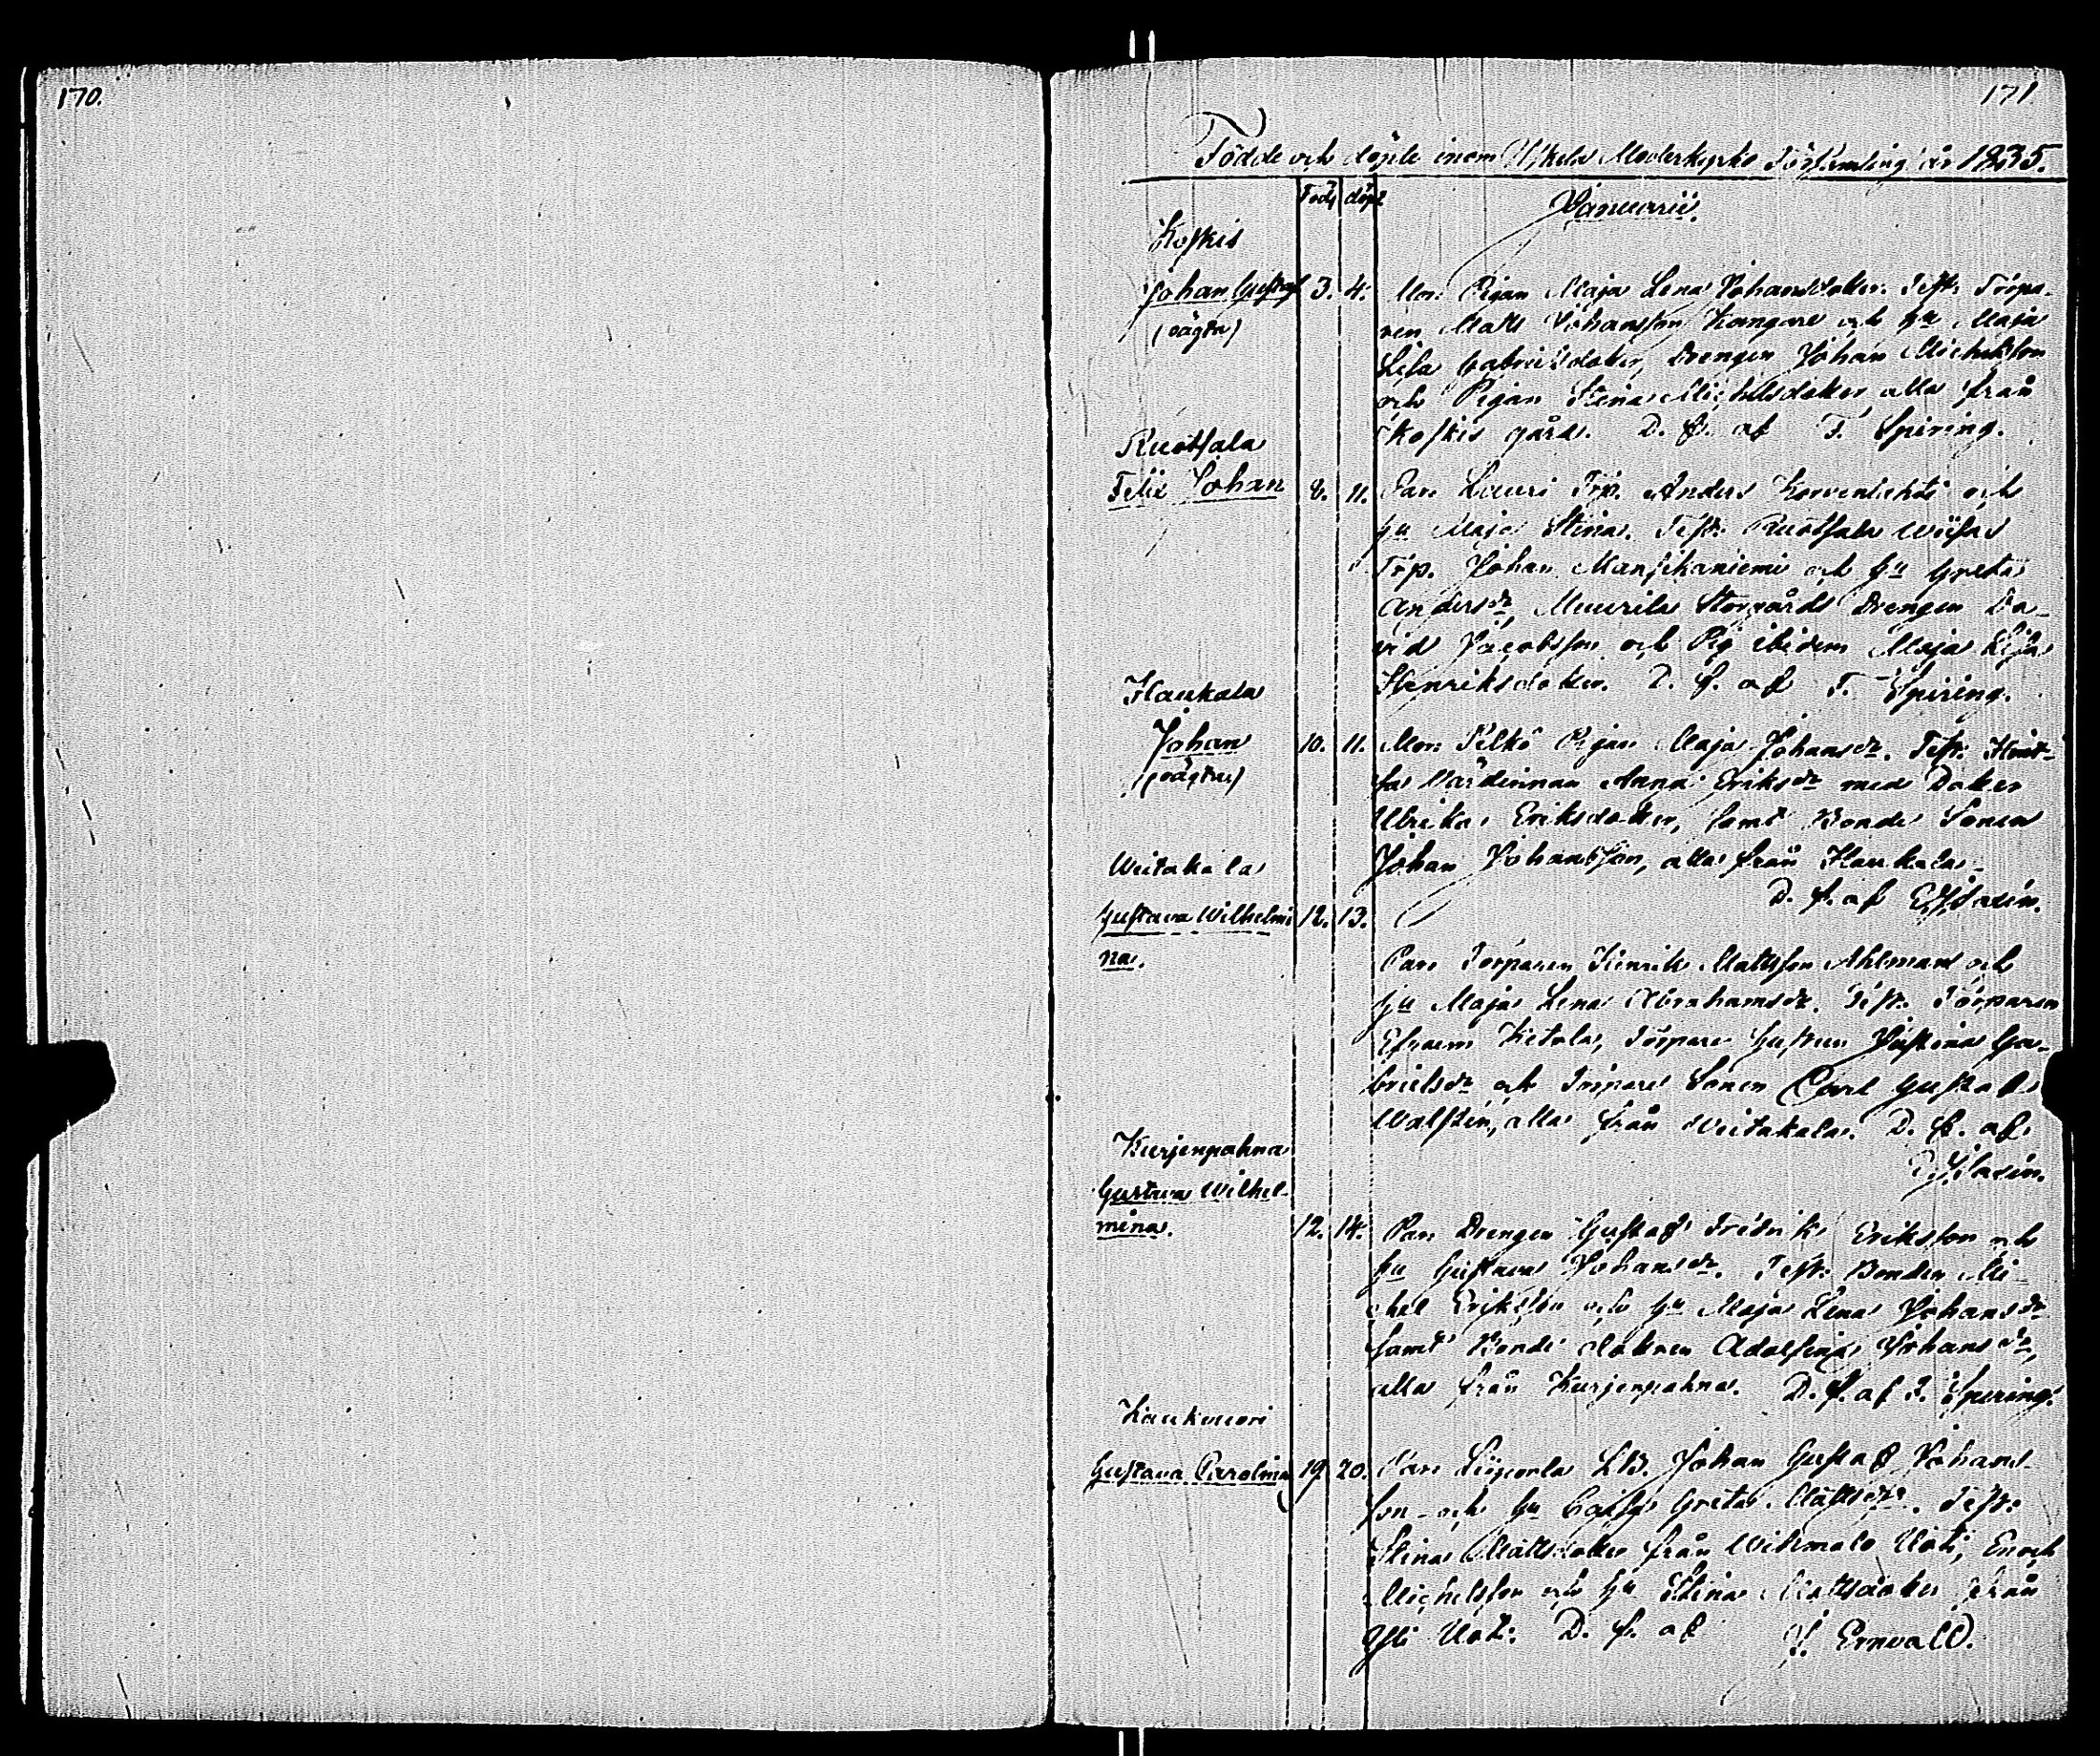 170.
171
Födde och döpte inom Uskela Moderkyrko Församling år 1835.
Född döpt
Januarii.
Koskis
Johan Gustaf 3. 4. Mor: Pigan Maja Lena Johansdotter. Test: Torpa-
(oägta) ren Matts Johansson Kangare och hu Maja
Lisa Gabrielsdotter, Drengen Johan Michelsson
och Pigan Stina Michelsdotter alla från
Koskis gård. D. f. af F. Spiring.
Ruotsala
Felix Johan 8. 11. Par: Lauri Trp. Anders Korvenlahti och
hu Maja Stina. Test: Ruotsala
Trp. Johan Mansikaniemi och hu Greta
Andersdr, Muurila Storgårds Drengen Da-
vid Jacobsson och Pig ibidem Maja Lisa
Henriksdotter. D. f. af F. Spiring.
Haukala
Johan 10. 11. Mor: Pigan Maja Johansdr. Test:
(oägta) Värdinnan Anna Eriksdr med Dotter
Ulrika Eriksdotter, samt Bonde Sonen
Johan Johansson, alla från Haukala.
D. f. af
Weitakala
Gustava Wilhelmi 12. 13.
na. Par: Torparen Henrik Mattsson Ahlman och
hu Maja Lena Abrahamsdr. Test: Torparen
Efraem Ketola, Torpare hustrun Justina Ga-
brielsdr och Torpare Sonen Carl Gustaf
Walstén, alla från Weitakala. D. f. af
Kurjenpahna
Gustava Wilhel-
mina. 12. 14. Par: Drengen Gustaf Fridrik Eriksson och
hu Gustava Johansdr. Test: Bonden Mi-
chel Eriksson och hu Maja Lena Johansdr
samt Bonde dottren Adolfina Johansdr,
alla från Kurjenpahna. D. f. af F. Spiring.
Kaukvuori
Gustava Carolina 19. 20. Par: Johan Gustaf Johans-
son och hu Caisa Greta Mattsdr. Test:
Stina Mattsdotter från Uoti, Enoch
Michelsson och hu Stina Mattsdotter från
Uoti. D. f. af J. Ernvald.